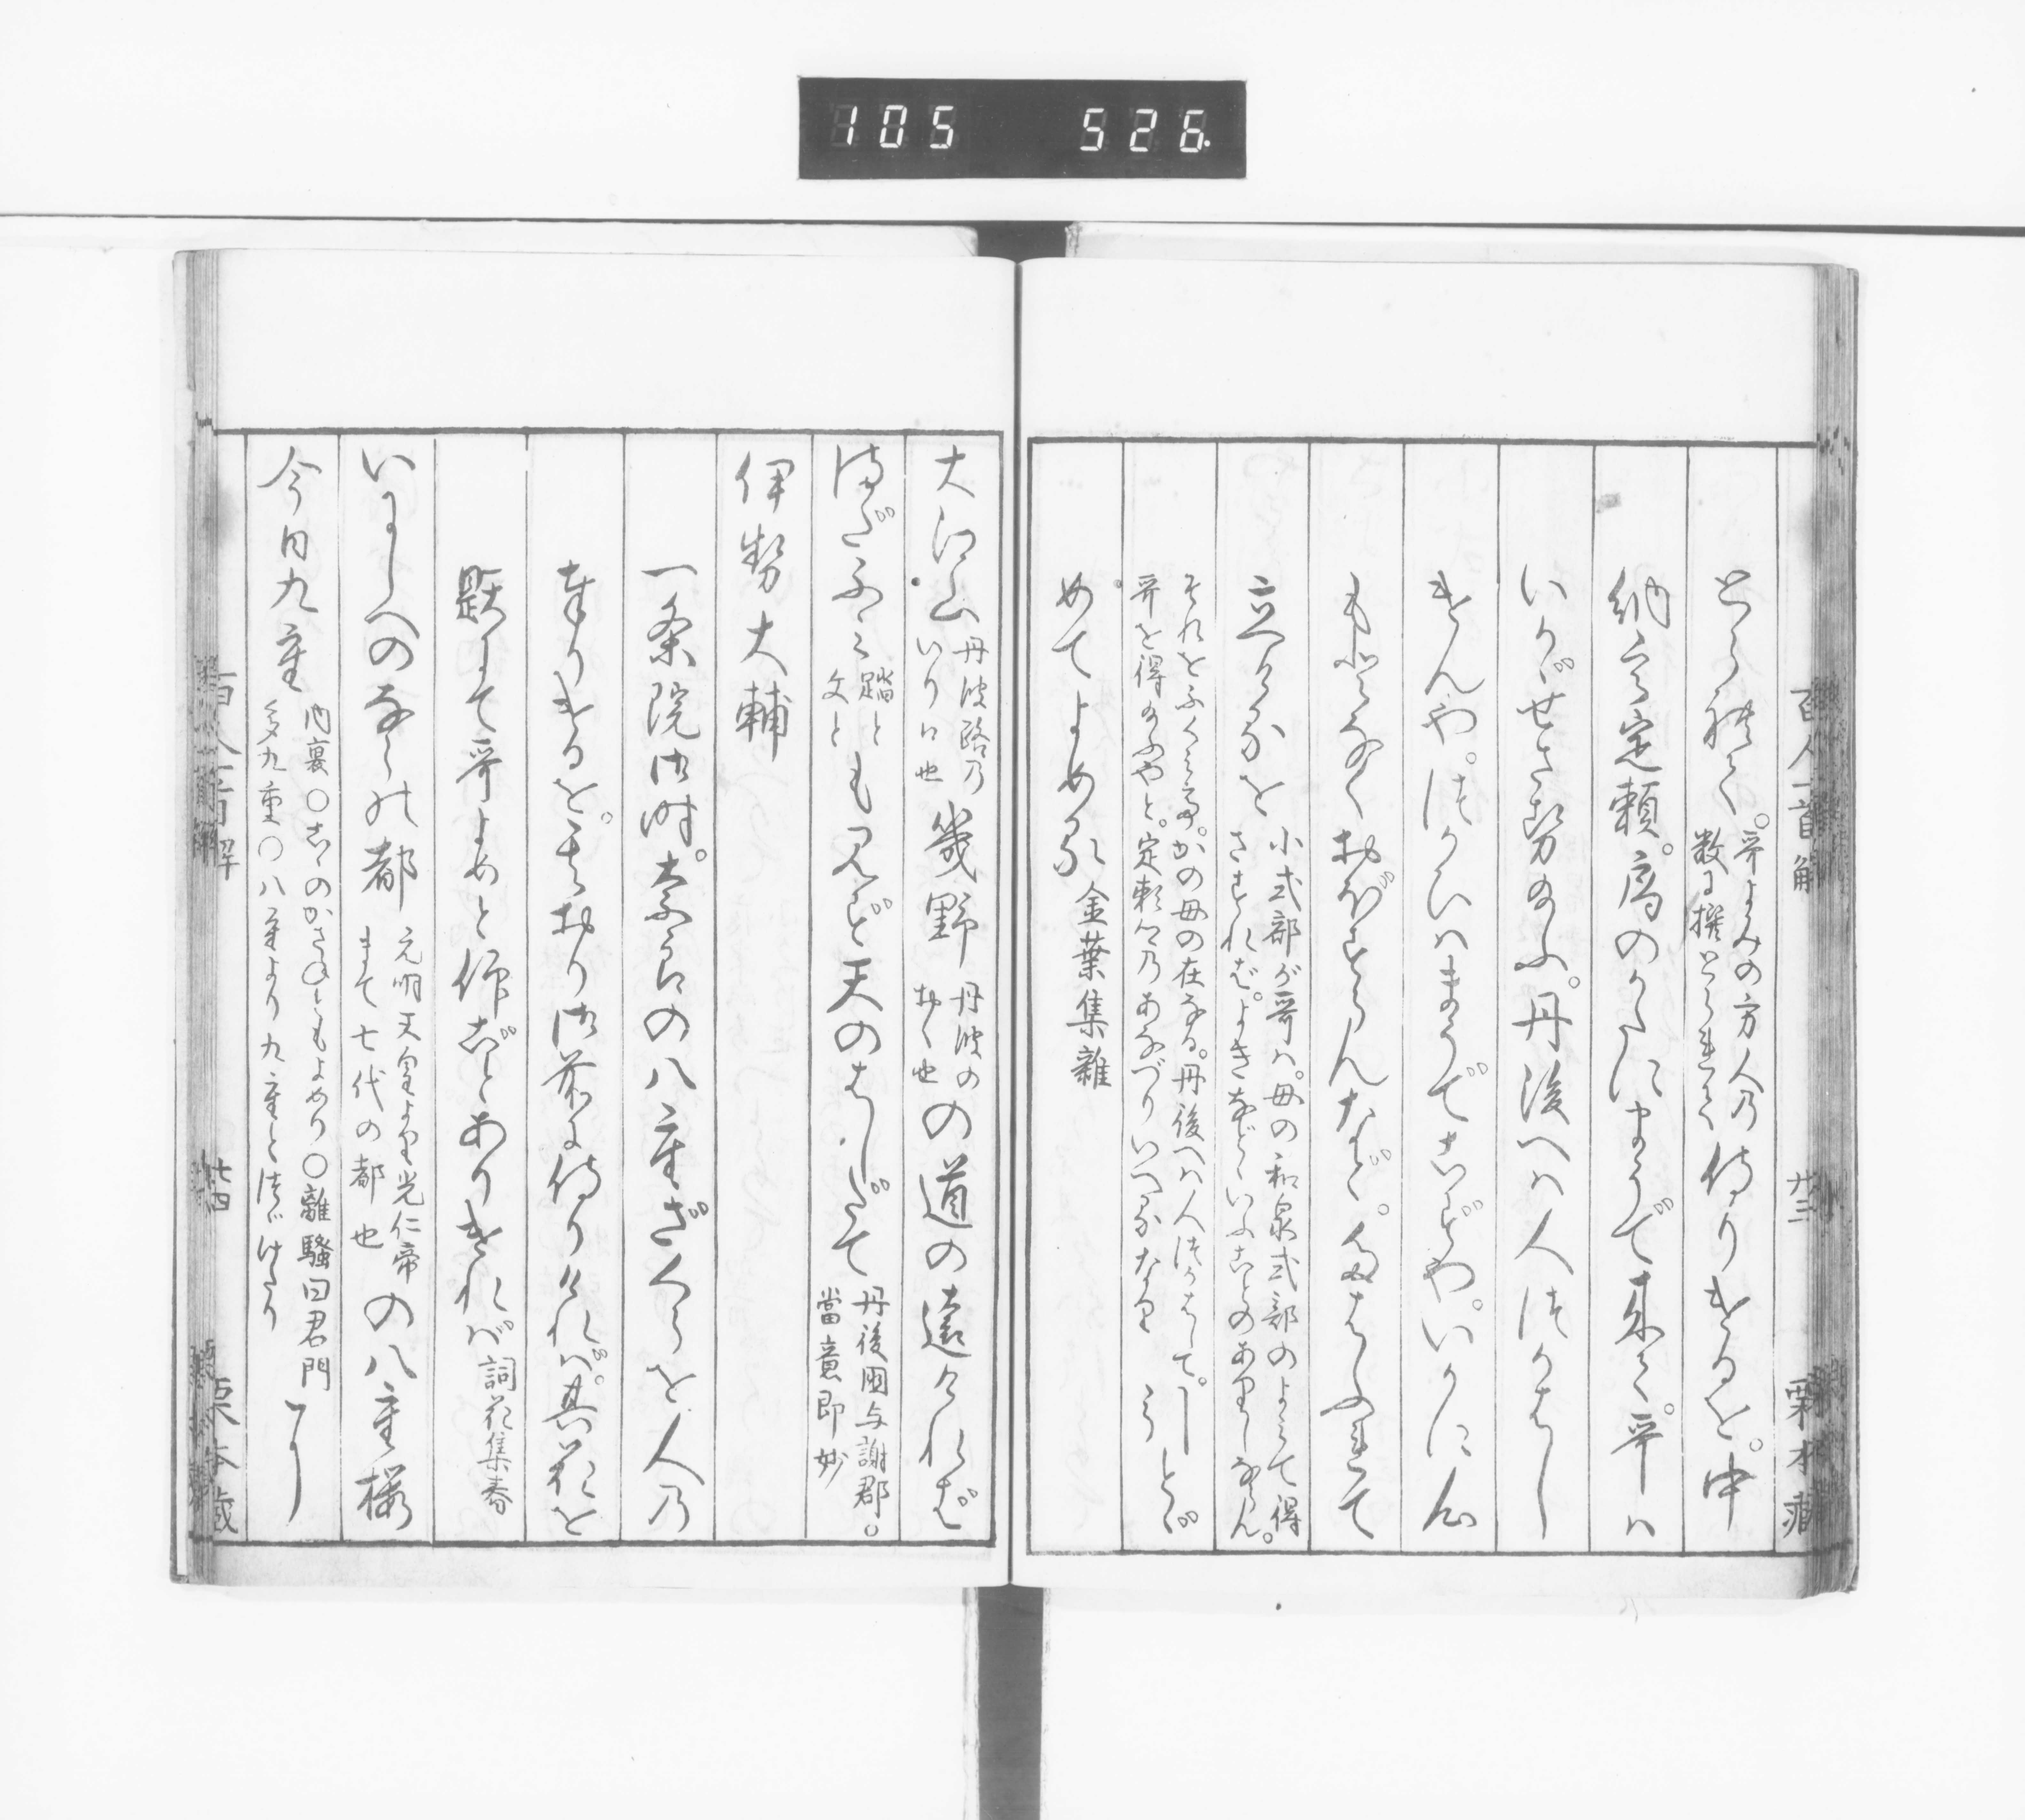 105 526
百人一首解 廿三 栗本蔵
とられて。哥よみの方人の
数に撰とられて
侍りけるを。中
納言定頼。局のかたにまうで来て。哥ハ
いかゞせさせ給ふ。丹後へハ人つかはし
けんや。つかひハまうでこずや。いかに心
もとなくおぼすらんなど。たはふれて
立ける を
小式部が哥ハ。母の和泉式部のよみて得
さすれば。よきなどいふことのありしならん。
それをふくみて。かの母の在なる。丹後へハ人つかはして。
哥を得給ふやと。定頼の乃あなづりいへるなり
ひきとゞ
めてよめる 金葉集雑
大江山
丹波路乃
いり口也
幾野
丹波の
おく也
の道の遠ければ
まだふみ
踏と
文と
も見ず天のはしだて
丹後國与謝郡。
當意即妙
伊勢大輔
一条院御時。奈良の八重ざくらを人の
奉りけるを。そのおり御前に侍りければ。其花を
題にて哥よめと仰ごとありければ 詞花集春
いにしへのならの都
元明天皇より光仁帝
まて七代の都也
の八重桜
今日九重
内裏〇こゝのかさねともよめり〇離騒曰君門
多九重〇八重より九重とつゞけたり
百人一首解 廿四 栗本蔵